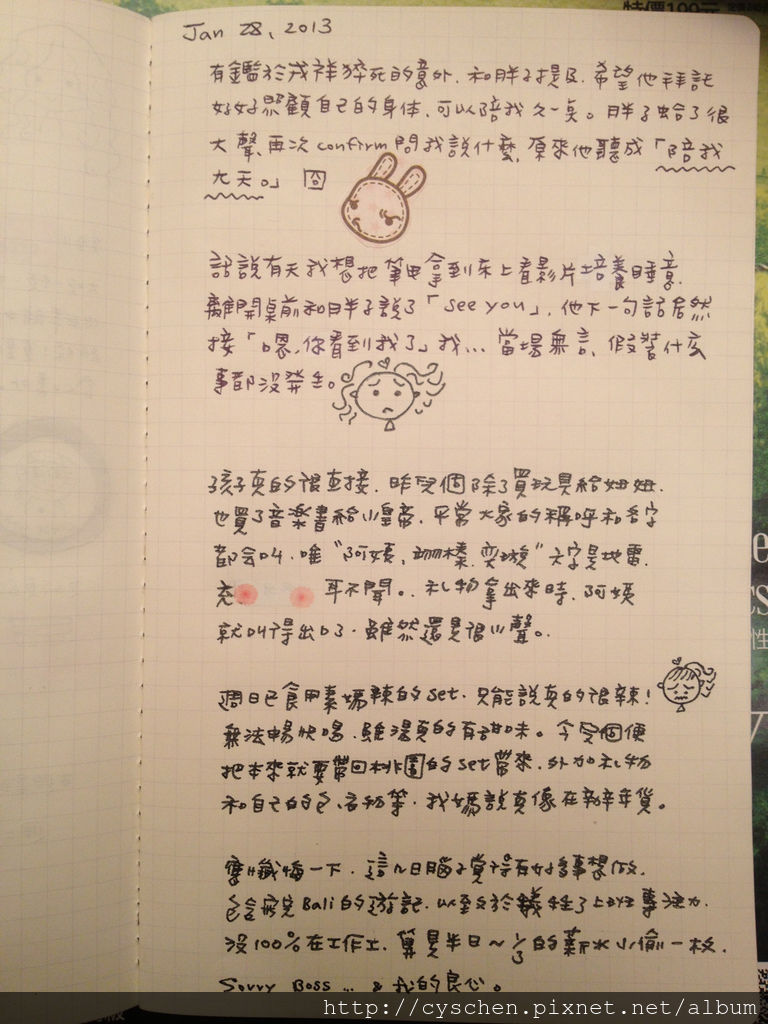 特價100元
Jan 28, 2013
有鑑於戎祥猝死的意外,和胖子提及,希望他拜託
好好照顧自己的身体,可以陪我久一點。胖子蛤了很
大聲,再次confirm問我說什麼,原來他聽成「陪我
九天。」 囧
話說有天我想把筆電拿到床上看影片培養睡意,
離開桌前和胖子說了「see you」,他下一句話居然
接「嗯,你看到我了」我...當場無言,假裝什么
事都沒發生。
孩子真的很直接,昨兒個除了買玩具給妞妞,
也買了音樂書給小皇帝,平常大家的稱呼和名字
都會叫,唯"阿姨、
充 耳不聞。,礼物拿出來時,阿姨
就叫得出口了,雖然還是很小聲。
週日已食用素媽辣的set,只能說真的很辣!
無法暢快喝,雖湯真的有甜味。今兒個便
把本來就要帶回桃園的set帶來,外加礼物
和自己的包、衣物等,我媽說真像在辦年貨。
懺悔一下,這幾日腦子覺得有好多事想做,
包含寫完Bali的遊記,以至於犧牲了上班專注力,
沒100%在工作上,算是半日~1/3的薪水小偷一枚,
Sorry Boss ... & 我的良心。
http://cyschen.pixnet.net/album